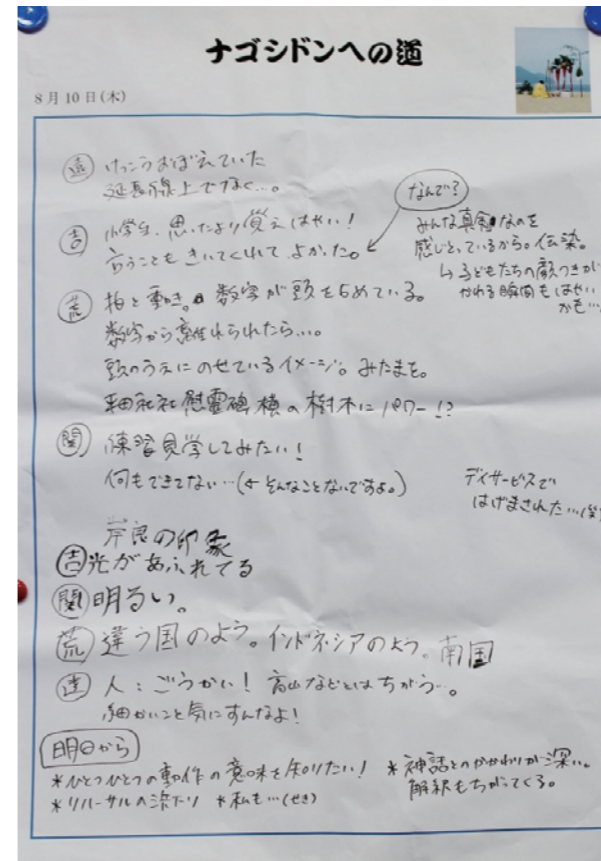 ナゴシドンへの道
8月10日(木)
遠 けっこうおぼえていた
延長線上でなく…。
なんで?
吉 小学生、思ったより覚えはやい!
言うこともきいてくれてよかった。
みんな真剣なのを
感じとっているから。伝染。
↳子どもたちの顔つきが
かわる瞬間もはやい
かも…
荒 拍と動き。数字が頭を占めている。
数字から離れられたら…。
頭のうえにのせているイメージ。みたまを。
慰霊碑横の樹木にパワー!?
関 練習見学してみたい!
何もできてない…(←そんなことないですよ。)
デイサービスで
はげまされた…(笑
岸良の印象
吉 光があふれてる
関 明るい。
荒 違う国のよう。インドネシアのよう。南国
達 人:ごうかい! 高山などとはちがう…。
細かいこと気にすんなよ!
明日から
*ひとつひとつの動作の意味を知りたい!
*リハーサルの流れ *私も…(せき)
*神話とのかかわりが深い。
解釈もちがってくる。